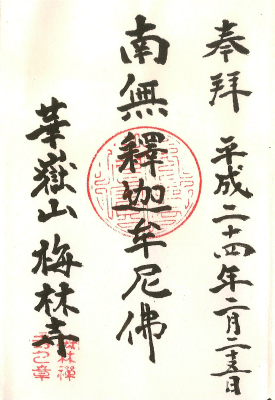 奉拜 平成二十四年二月二十五日
南無釋迦牟尼佛
華嶽山 梅林寺